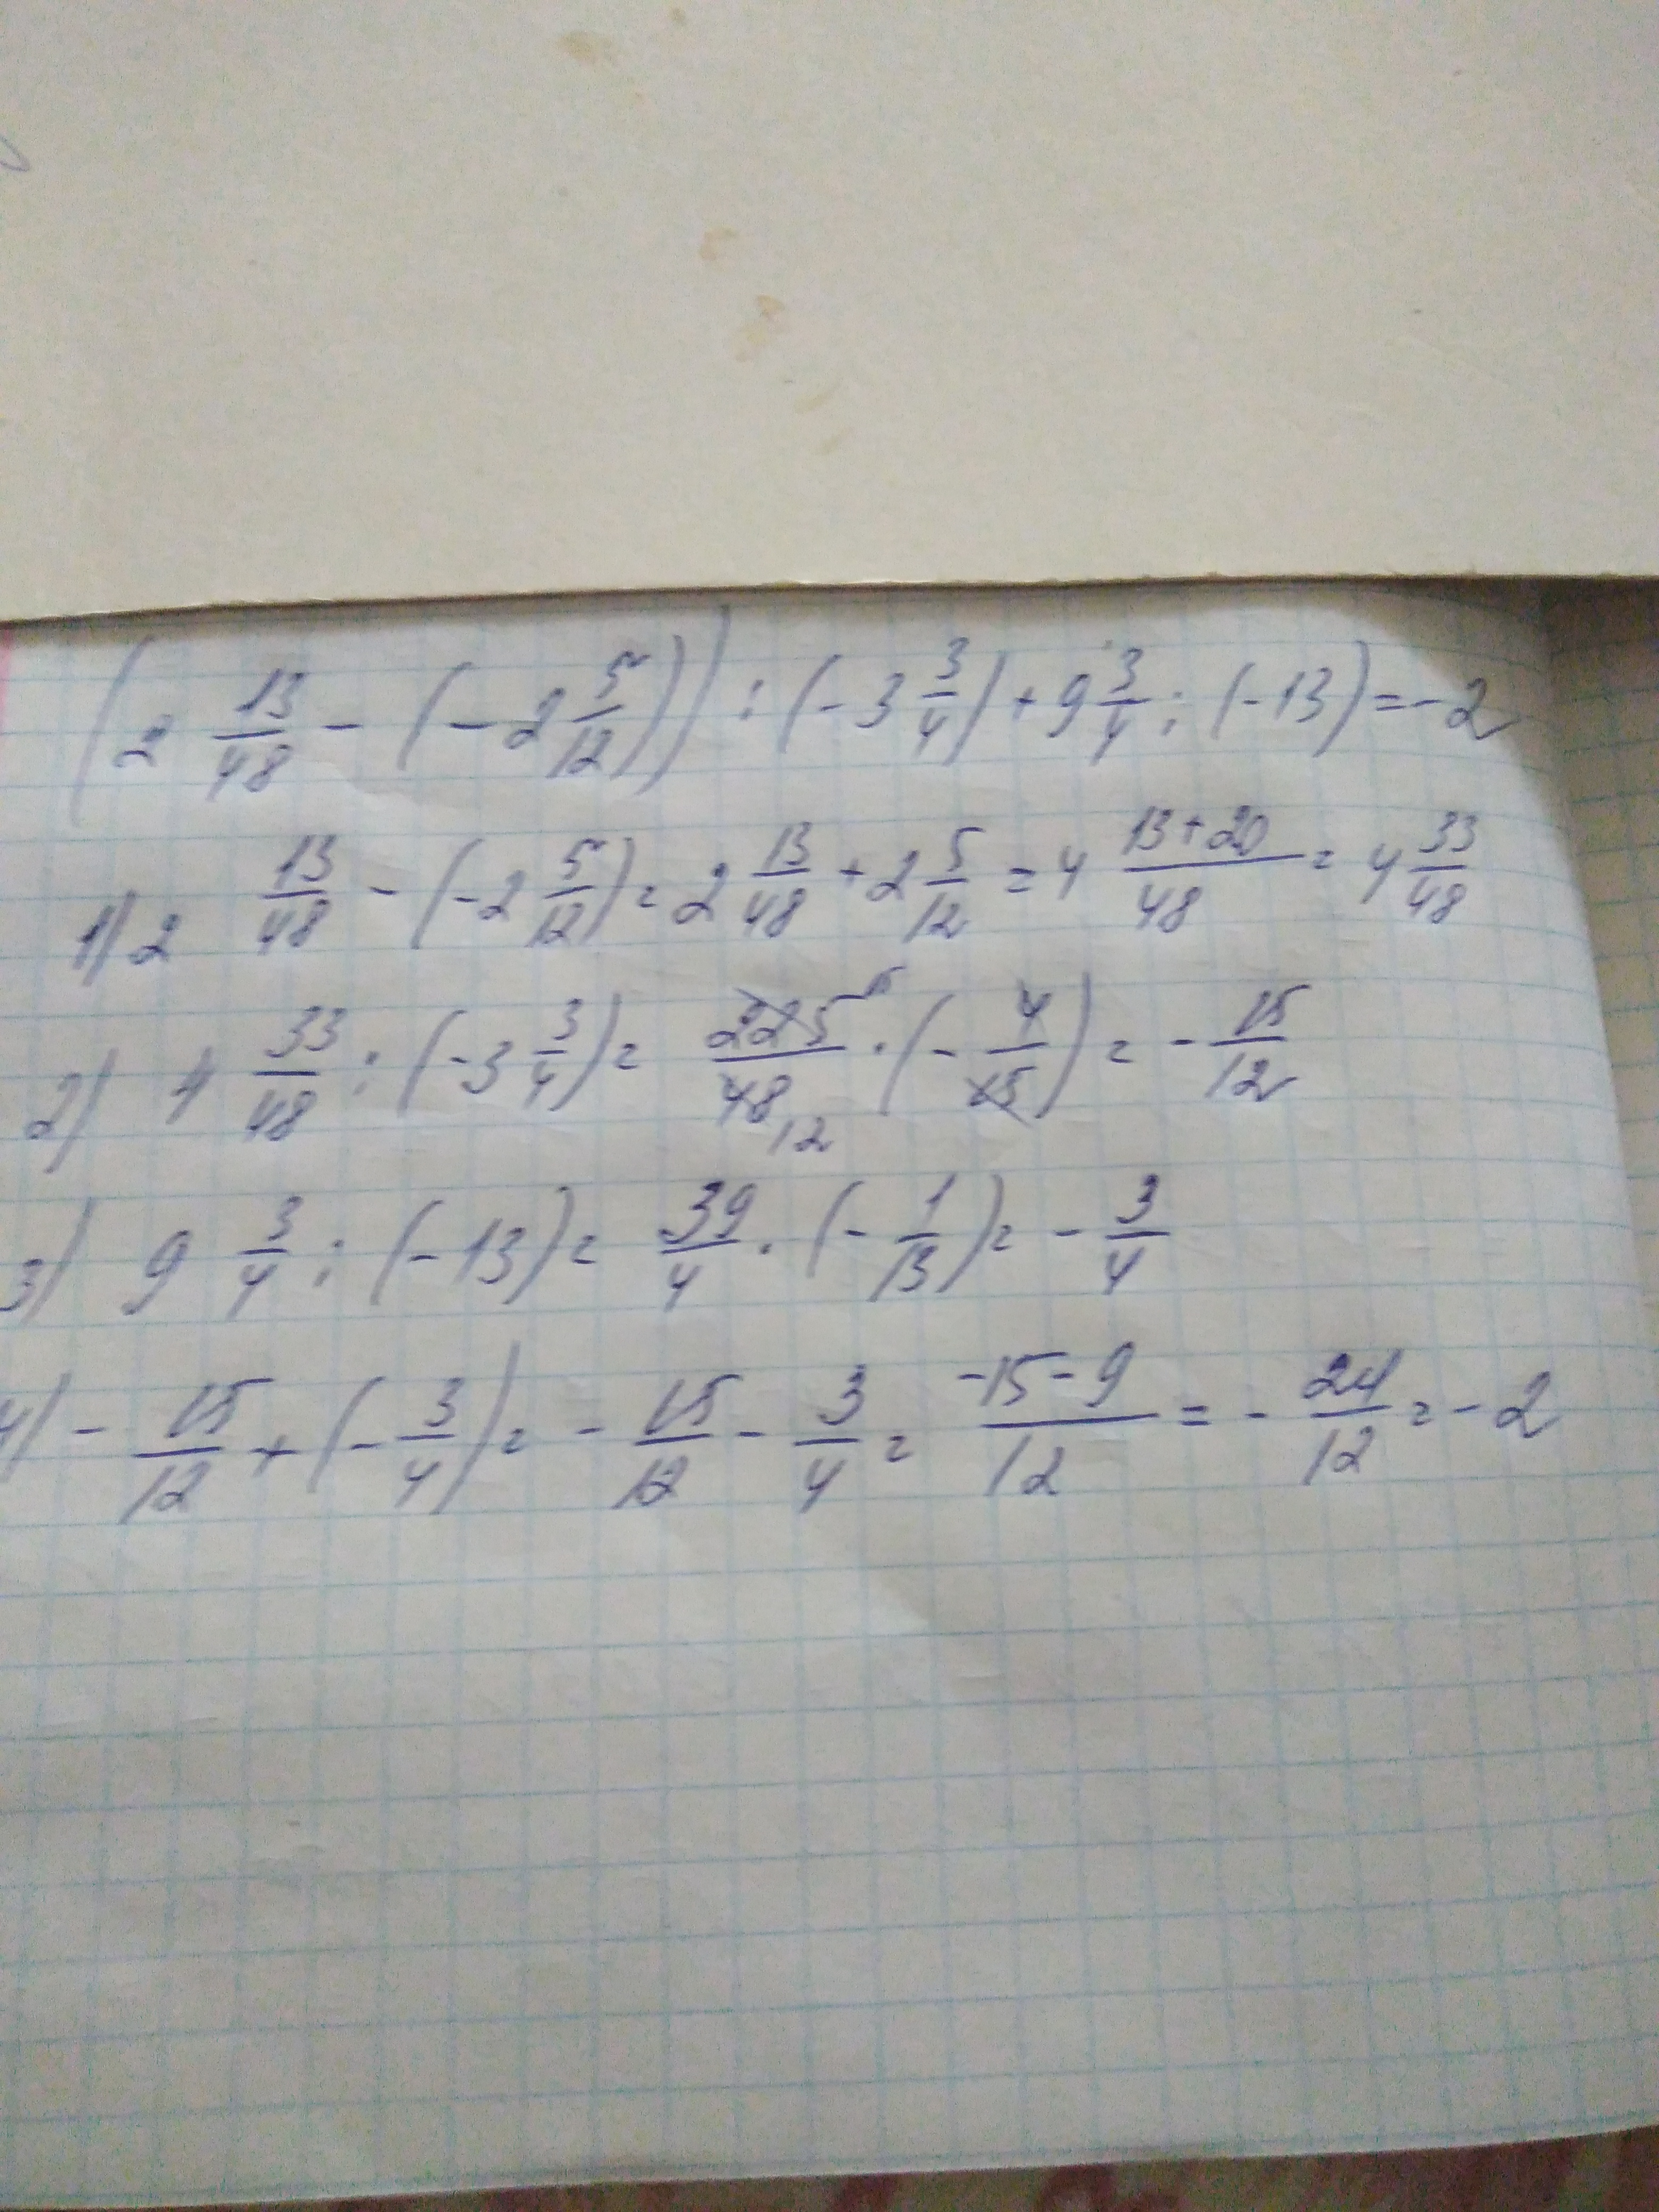 (2 13/48 - (-2 5/12)) : (-3 3/4) + 9 3/4 : (-13) = -2
1) 2 13/48 - (-2 5/12) = 2 13/48 + 2 5/12 = 4 13+20/48 = 4 33/48
2) 4 33/48 : (-3 3/4) = 225 15/48 12 · (-4/15) = -15/12
3) 9 3/4 : (-13) = 39/4 · (-1/13) = -3/4
4) -15/12 + (-3/4) = -15/12 - 3/4 = -15-9/12 = -24/12 = -2